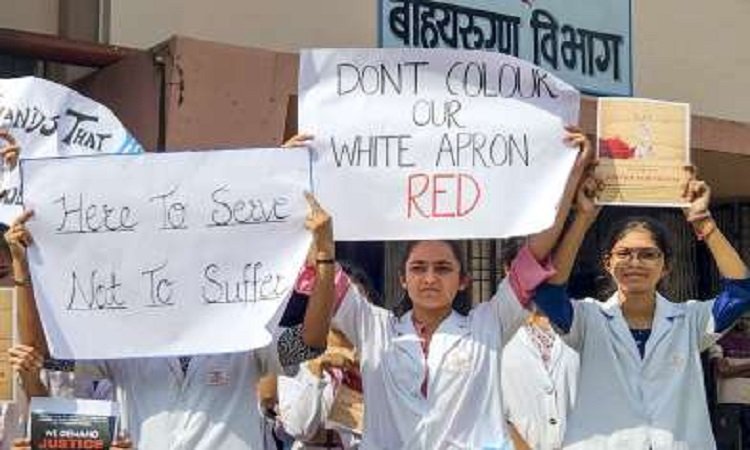 बाह्यरुग्ण विभाग
ANDS THAT
DONT COLOUR
OUR
WHITE APRON
RED
Here To Serve
Not To Suffer
WE DEMAND
JUSTICE